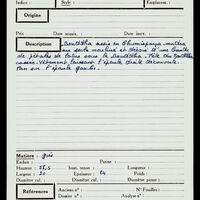 Indice :    Style :    Emplacem. :
Origine
Prix    Date    acquis. :    insert. :
Description Bouddha assis en Bhumisparça mudra
sur socle mouluré et décoré d'un
de pétales de lotus sous le Bouddha. Tête du Bouddha
cassée. Vêtement laissant l'épaule droite découverte.
Pan sur l'épaule gauche.
Matière : grès
Enduit :    Patine :
Hauteur : 28,5    haut. tenon :    Longueur :
Largeur : 20    Epaisseur : 14    Poids :
Diamètre :    Diamètre col. :    Diamètre panse :
Références    Anciens n° :    N° Fouilles :
Ancien n° :    Divers :